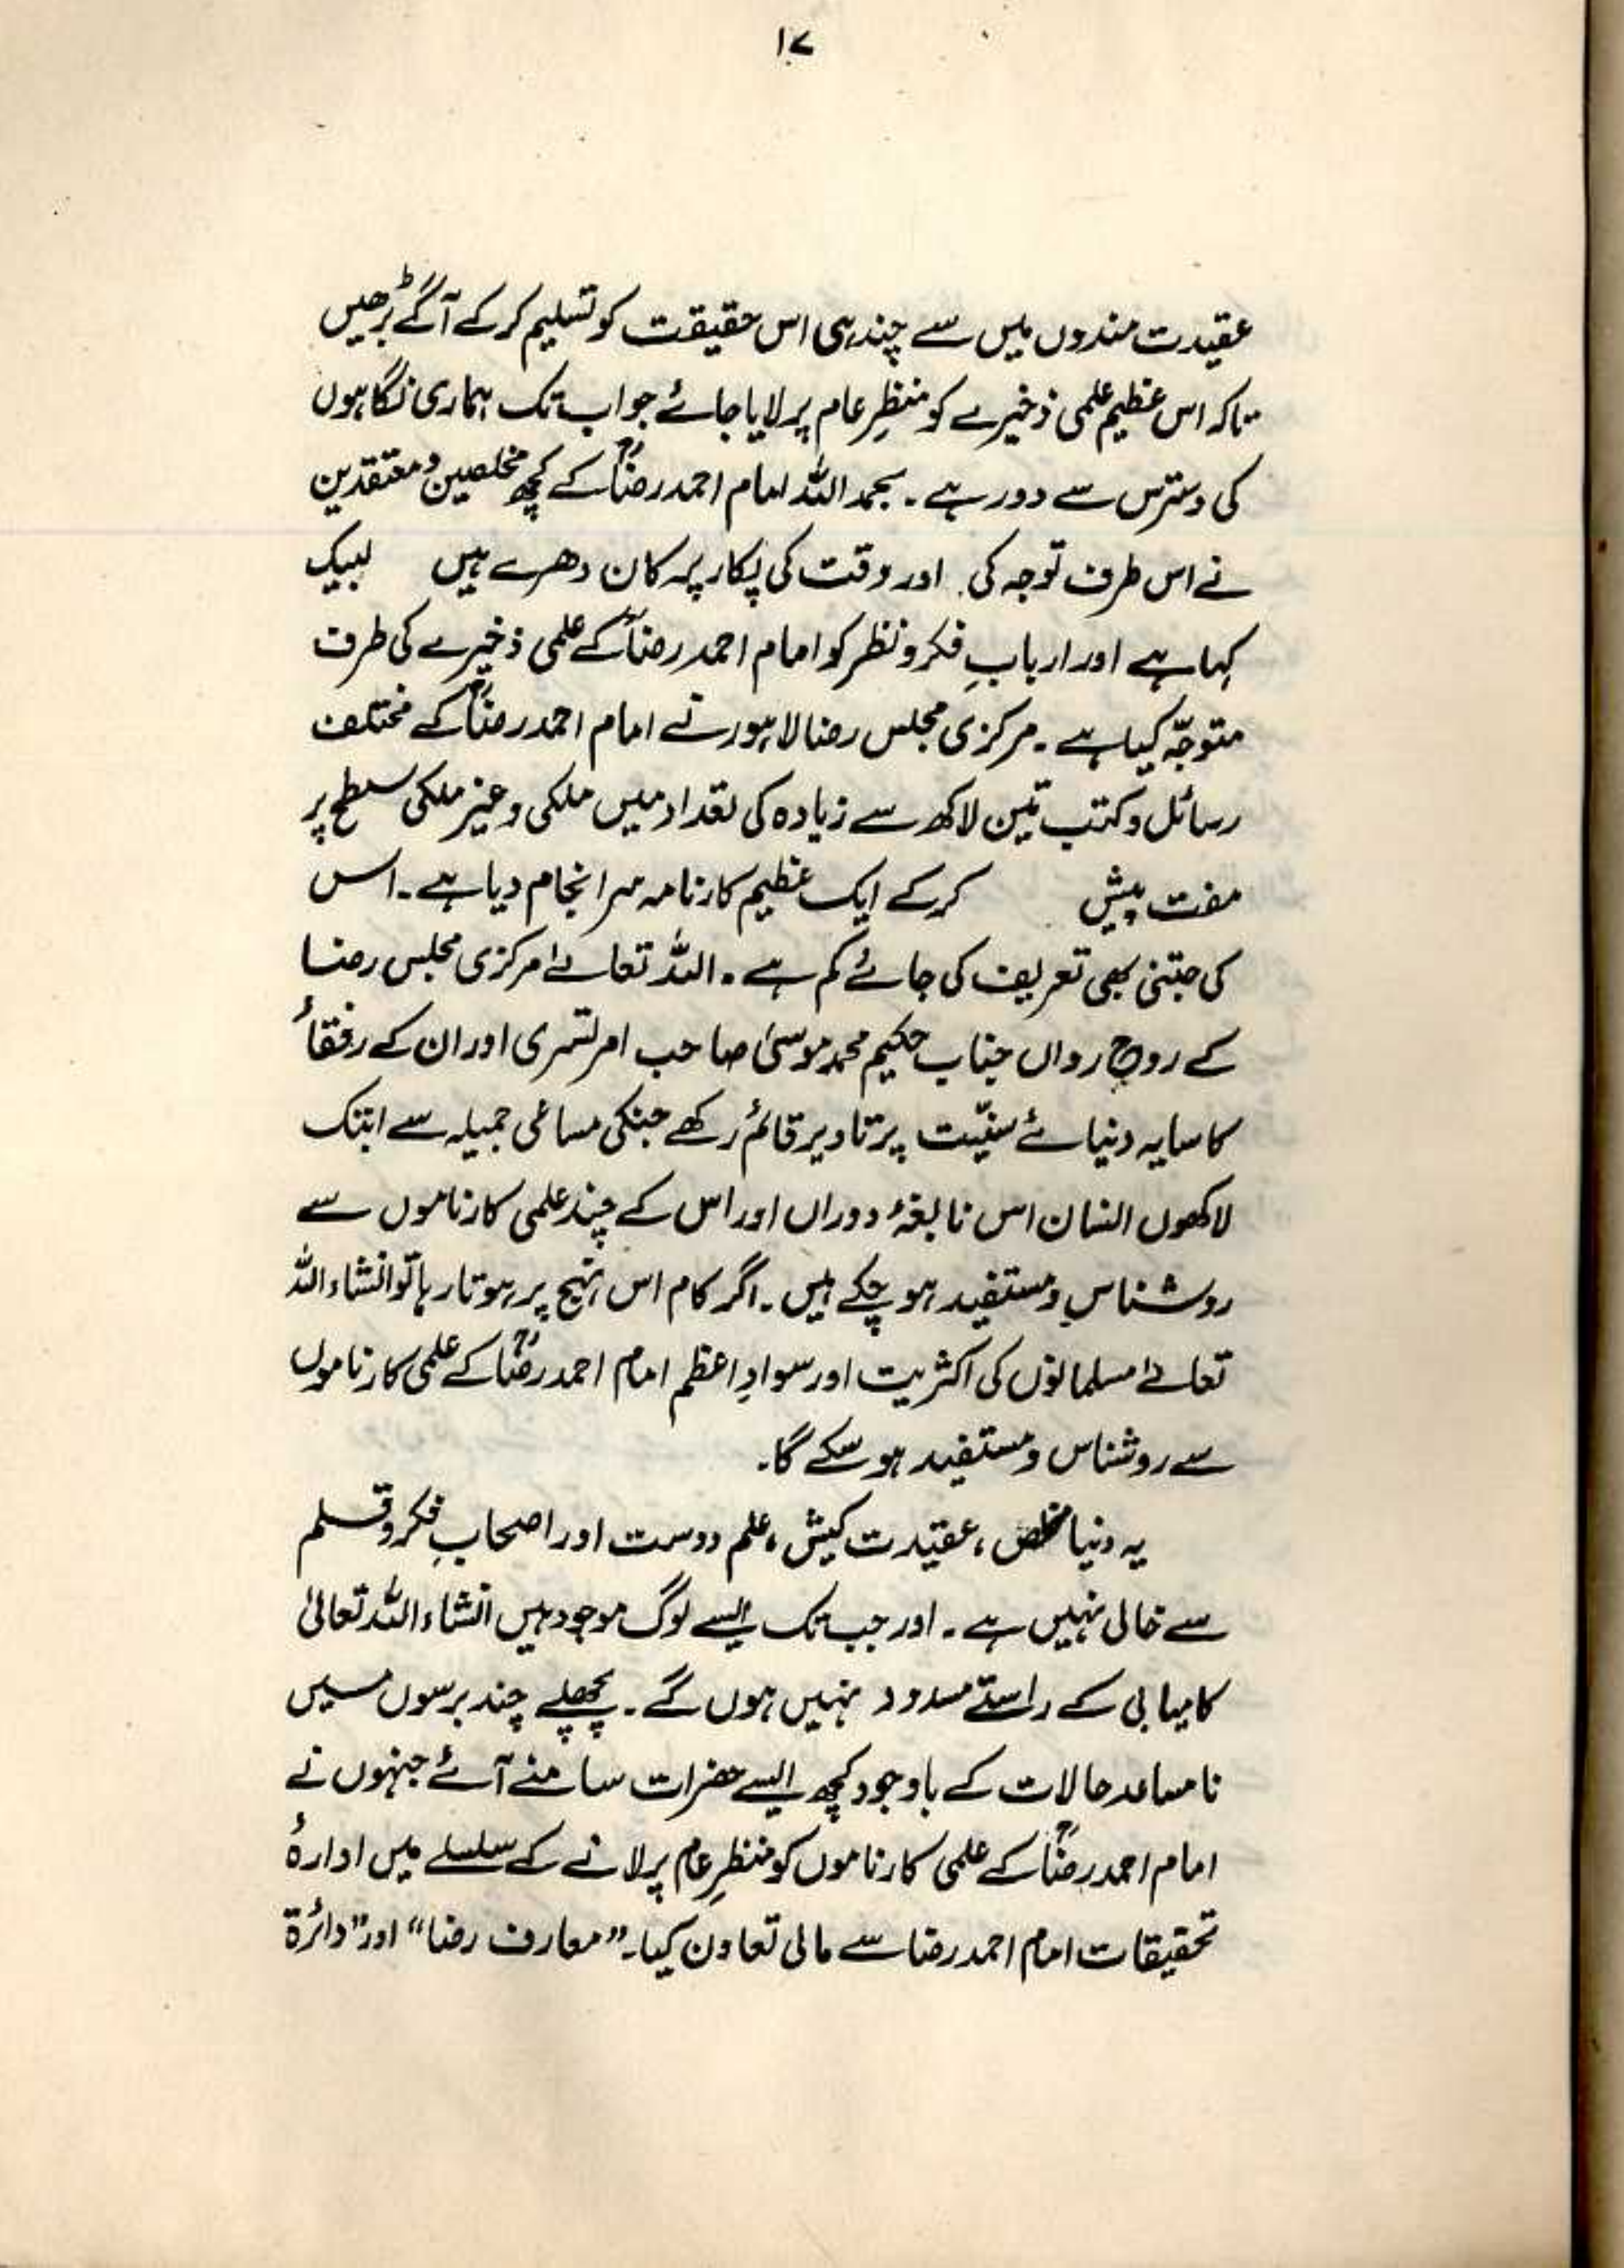 ۱۷
عقیدت مندوں میں سے چند ہی اس حقیقت کو تسلیم کر کے آگے بڑھیں
تاکہ اس عظیم علمی ذخیرے کو منظرِ عام پر لایا جائے جو اب تک ہماری نگاہوں
کی دسترس سے دور ہے۔ بحمد اللہ امام احمد رضاؒ کے کچھ مخلصین و معتقدین
نے اس طرف توجہ کی اور وقت کی پکار پر کان دھرے ہیں لبیک
کہا ہے اور اربابِ فکر و نظر کو امام احمد رضاؒ کے علمی ذخیرے کی طرف
متوجّہ کیا ہے۔ مرکزی مجلس رضا لاہور نے امام احمد رضاؒ کے مختلف
رسائل و کتب تین لاکھ سے زیادہ کی تعداد میں ملکی و غیر ملکی سطح پر
مفت پیش کر کے ایک عظیم کارنامہ سرانجام دیا ہے۔ اس
کی جتنی بھی تعریف کی جائے کم ہے۔ اللہ تعالےٰ مرکزی مجلس رضا
کے روحِ رواں جناب حکیم محمد موسیٰ صاحب امرتسری اور ان کے رفقاٴ
کا سایہ دنیائے سنیّت پر تا دیر قائم رکھے جنکی مساعی جمیلہ سے ابتک
لاکھوں انسان اس نابغۂ دوراں اور اس کے چند علمی کارناموں سے
روشناس و مستفید ہو چکے ہیں۔ اگر کام اس نہج پر ہوتا رہا تو انشاء اللہ
تعالےٰ مسلمانوں کی اکثریت اور سوادِ اعظم امام احمد رضاؒ کے علمی کارناموں
سے روشناس و مستفید ہو سکے گا۔
یہ دنیا مخلص، عقیدت کیش، علم دوست اور اصحابِ فکر و قلم
سے خالی نہیں ہے۔ اور جب تک ایسے لوگ موجود ہیں انشاء اللہ تعالیٰ
کامیابی کے راستے مسدود نہیں ہوں گے۔ پچھلے چند برسوں میں
نامساعد حالات کے باوجود کچھ ایسے حضرات سامنے آئے جنہوں نے
امام احمد رضاؒ کے علمی کارناموں کو منظرِ عام پر لانے کے سلسلے میں ادارۂ
تحقیقات امام احمد رضا سے مالی تعاون کیا۔ ”معارف رضا“ اور ”دائرۃ